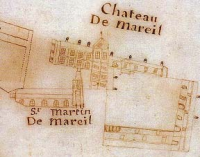 Chateau
De Mareil
St Martin
De Mareil